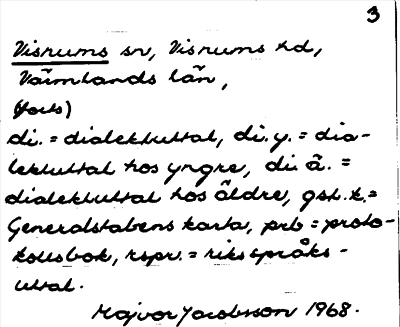 3
Visnums sn, Visnums hd,
Värmlands län,
(forts)
di. = dialektuttal, di.y. = dia-
lektuttal hos yngre, di ä. =
dialektuttal hos äldre, gst.k. =
Generalstabens karta, prb = proto-
kollsbok, rspr. = riksspråks-
uttal.
Majvor Jacobsson 1968.